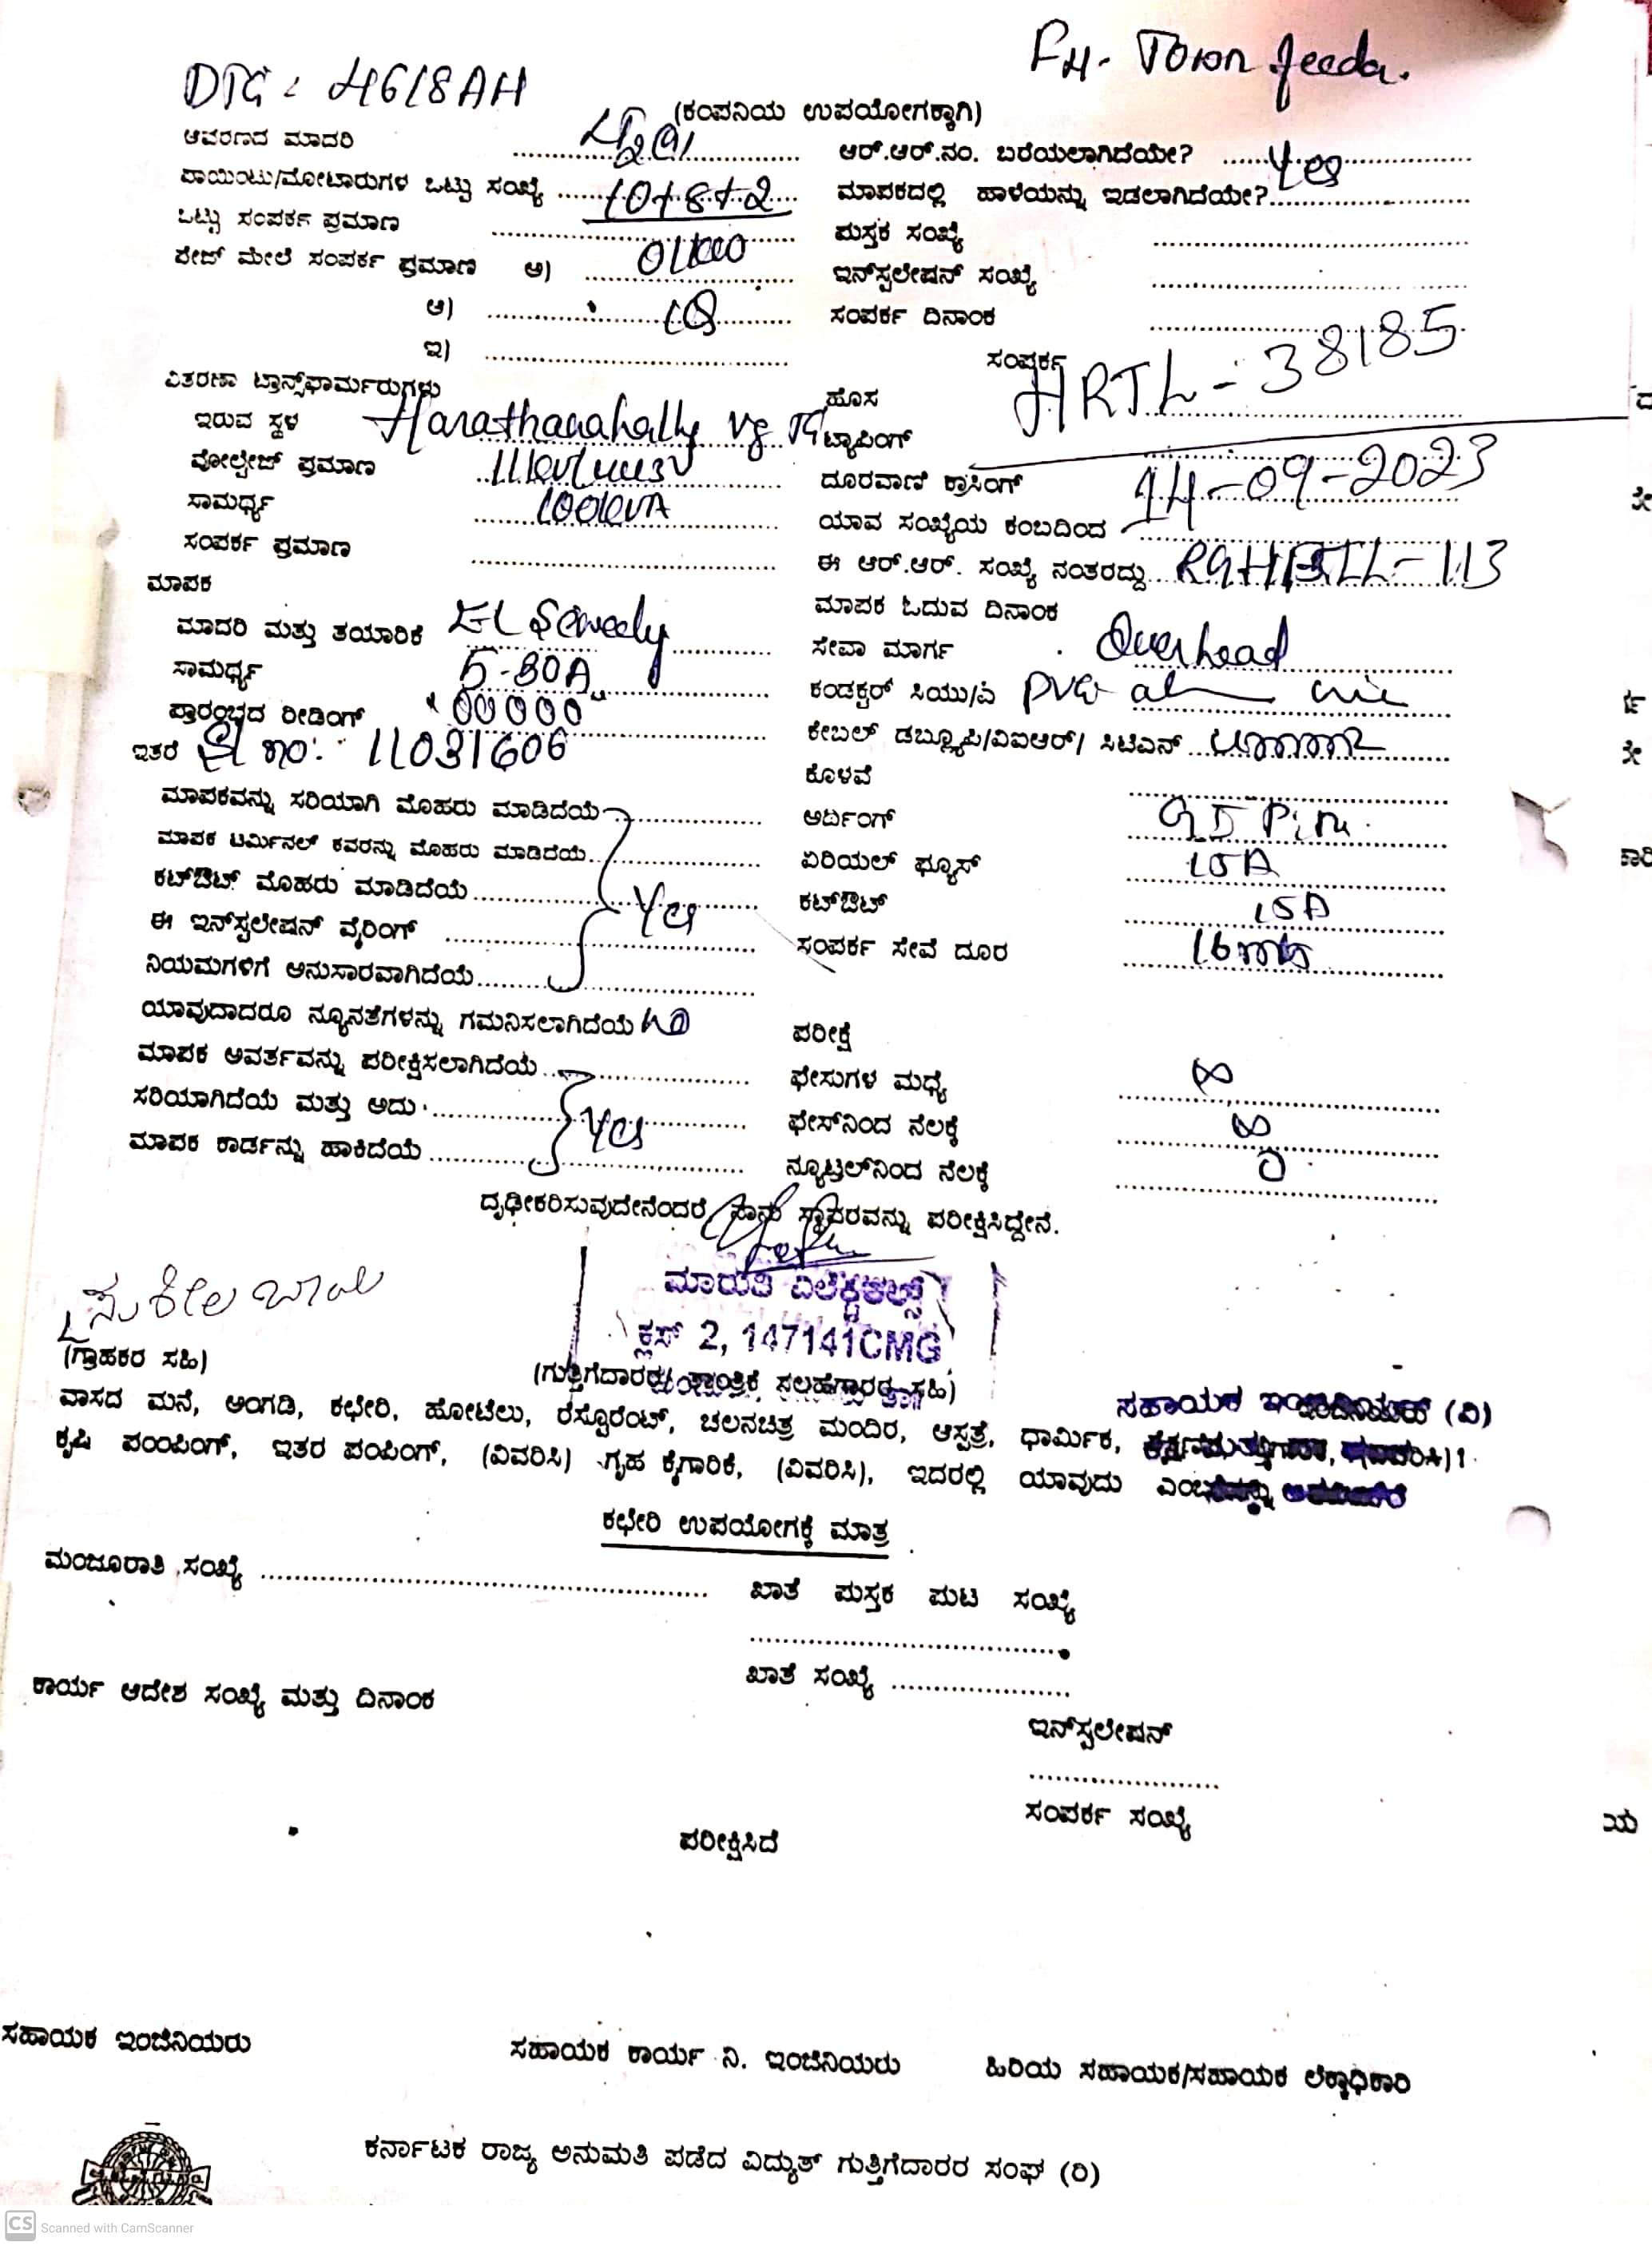 DTC: 4618AH
F4- Town feeder.
(ಕಂಪನಿಯ ಉಪಯೋಗಕ್ಕಾಗಿ)
ಆವರಣದ ಮಾದರಿ
ಆರ್.ಆರ್.ನಂ. ಬರೆಯಲಾಗಿದೆಯೇ? Yes
ಪಾಯಿಂಟು/ಮೋಟಾರುಗಳ ಒಟ್ಟು ಸಂಖ್ಯೆ 10+8+2
ಮಾಪಕದಲ್ಲಿ ಹಾಳೆಯನ್ನು ಇಡಲಾಗಿದೆಯೇ?
ಒಟ್ಟು ಸಂಪರ್ಕ ಪ್ರಮಾಣ
ಪುಸ್ತಕ ಸಂಖ್ಯೆ
ಪೇಜ್ ಮೇಲೆ ಸಂಪರ್ಕ ಪ್ರಮಾಣ ಅ) 01kW
ಇನ್‌ಸ್ಟಲೇಷನ್ ಸಂಖ್ಯೆ
ಆ)
ಸಂಪರ್ಕ ದಿನಾಂಕ
ಇ)
ಸಂಪರ್ಕ HRTL-38185
ವಿತರಣಾ ಟ್ರಾನ್ಸ್‌ಫಾರ್ಮರುಗಳು
ಹೊಸ
ಇರುವ ಸ್ಥಳ Harathanahally vg TC
ಟ್ಯಾಪಿಂಗ್
ವೋಲ್ಟೇಜ್ ಪ್ರಮಾಣ
ದೂರವಾಣಿ ಕ್ರಾಸಿಂಗ್ 14-09-2023
ಸಾಮರ್ಥ್ಯ 100kVA
ಯಾವ ಸಂಖ್ಯೆಯ ಕಂಬದಿಂದ
ಸಂಪರ್ಕ ಪ್ರಮಾಣ
ಈ ಆರ್.ಆರ್. ಸಂಖ್ಯೆ ನಂತರದ್ದು
ಮಾಪಕ
ಮಾಪಕ ಓದುವ ದಿನಾಂಕ
ಮಾದರಿ ಮತ್ತು ತಯಾರಿಕೆ
ಸೇವಾ ಮಾರ್ಗ Overhead
ಸಾಮರ್ಥ್ಯ 5-30A
ಕಂಡಕ್ಟರ್ ಸಿಯು/ಎ PVC al
ಪ್ರಾರಂಭದ ರೀಡಿಂಗ್ "00000"
ಕೇಬಲ್ ಡಬ್ಲ್ಯೂಪಿ/ವಿಐಆರ್/ ಸಿಟಿಎಸ್ 4mm2
ಇತರೆ Sl no: 11031606
ಕೊಳವೆ
ಮಾಪಕವನ್ನು ಸರಿಯಾಗಿ ಮೊಹರು ಮಾಡಿದೆಯೆ
ಅರ್ಥಿಂಗ್ GI Pin
ಮಾಪಕ ಟರ್ಮಿನಲ್ ಕವರನ್ನು ಮೊಹರು ಮಾಡಿದೆಯೆ
ಏರಿಯಲ್ ಫ್ಯೂಸ್ 15A
ಕಟ್‌ಔಟ್ ಮೊಹರು ಮಾಡಿದೆಯೆ Yes
ಕಟ್‌ಔಟ್ 15A
ಈ ಇನ್‌ಸ್ಟಲೇಷನ್ ವೈರಿಂಗ್
ಸಂಪರ್ಕ ಸೇವೆ ದೂರ 16mts
ನಿಯಮಗಳಿಗೆ ಅನುಸಾರವಾಗಿದೆಯೆ
ಯಾವುದಾದರೂ ನ್ಯೂನತೆಗಳನ್ನು ಗಮನಿಸಲಾಗಿದೆಯೆ No
ಪರೀಕ್ಷೆ
ಮಾಪಕ ಆವರ್ತವನ್ನು ಪರೀಕ್ಷಿಸಲಾಗಿದೆಯೆ
ಫೇಸುಗಳ ಮಧ್ಯೆ ∞
ಸರಿಯಾಗಿದೆಯೆ ಮತ್ತು ಅದು Yes
ಫೇಸ್‌ನಿಂದ ನೆಲಕ್ಕೆ ∞
ಮಾಪಕ ಕಾರ್ಡನ್ನು ಹಾಕಿದೆಯೆ
ನ್ಯೂಟ್ರಲ್‌ನಿಂದ ನೆಲಕ್ಕೆ 0
ದೃಢೀಕರಿಸುವುದೇನೆಂದರೆ ನಾನು ಸ್ಥಾವರವನ್ನು ಪರೀಕ್ಷಿಸಿದ್ದೇನೆ.
ಸುಶೀಲ ಬಾಯಿ
ಮಾರುತಿ ಎಲೆಕ್ಟ್ರಿಕಲ್ಸ್
ಕ್ಲಾಸ್ 2, 147141CMG
(ಗ್ರಾಹಕರ ಸಹಿ)
(ಗುತ್ತಿಗೆದಾರರ/ ತಾಂತ್ರಿಕ ಸಲಹೆಗಾರರ ಸಹಿ)
ಸಹಾಯಕ ಇಂಜಿನಿಯರ್ (ವಿ)
ವಾಸದ ಮನೆ, ಅಂಗಡಿ, ಕಛೇರಿ, ಹೋಟೆಲು, ರೆಸ್ಟೊರೆಂಟ್, ಚಲನಚಿತ್ರ ಮಂದಿರ, ಆಸ್ಪತ್ರೆ, ಧಾರ್ಮಿಕ,
ಕೃಷಿ ಪಂಂಪಿಂಗ್, ಇತರ ಪಂಪಿಂಗ್, (ವಿವರಿಸಿ) ಗೃಹ ಕೈಗಾರಿಕೆ, (ವಿವರಿಸಿ), ಇದರಲ್ಲಿ ಯಾವುದು
ಕಛೇರಿ ಉಪಯೋಗಕ್ಕೆ ಮಾತ್ರ
ಮಂಜೂರಾತಿ ಸಂಖ್ಯೆ
ಖಾತೆ ಪುಸ್ತಕ ಪುಟ ಸಂಖ್ಯೆ
ಖಾತೆ ಸಂಖ್ಯೆ
ಕಾರ್ಯ ಆದೇಶ ಸಂಖ್ಯೆ ಮತ್ತು ದಿನಾಂಕ
ಇನ್‌ಸ್ಟಲೇಷನ್
ಸಂಪರ್ಕ ಸಂಖ್ಯೆ
ಪರೀಕ್ಷಿಸಿದೆ
ಸಹಾಯಕ ಇಂಜಿನಿಯರು
ಸಹಾಯಕ ಕಾರ್ಯ ನಿ. ಇಂಜಿನಿಯರು
ಹಿರಿಯ ಸಹಾಯಕ/ಸಹಾಯಕ ಲೆಕ್ಕಾಧಿಕಾರಿ
ಕರ್ನಾಟಕ ರಾಜ್ಯ ಅನುಮತಿ ಪಡೆದ ವಿದ್ಯುತ್ ಗುತ್ತಿಗೆದಾರರ ಸಂಘ (ರಿ)
CS Scanned with CamScanner